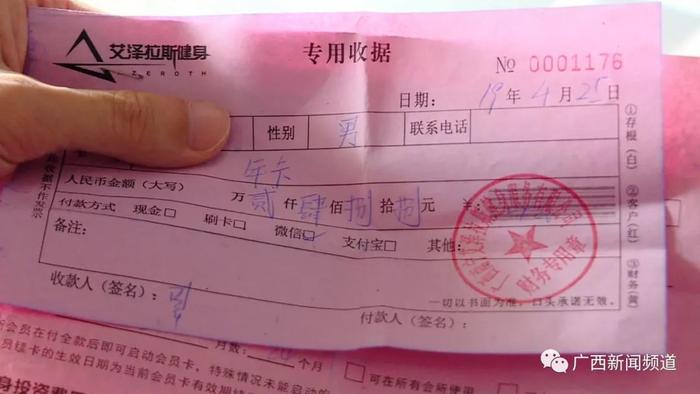 艾泽拉斯健身
ZEROTH
专用收据
№ 0001176
日期： 19 年 4 月 25 日
性别 男 联系电话
年卡
人民币金额（大写） 万 贰 仟 肆 佰 捌 拾 捌 元 ¥：
付款方式 现金□ 刷卡□ 微信☑ 支付宝□ 其他：
备注：
收款人（签名）：
一切以书面为准，口头承诺无效。
付款人（签名）：
此收据不作发票
①存根（白） ②客户（红） ③财务（黄）
财务专用章
会员在付全款后即可启动会员卡，特殊情况未能启动的
员续卡的生效日期为当前会员卡有效期
月数： 个月
可在所有会所使用
广西新闻频道